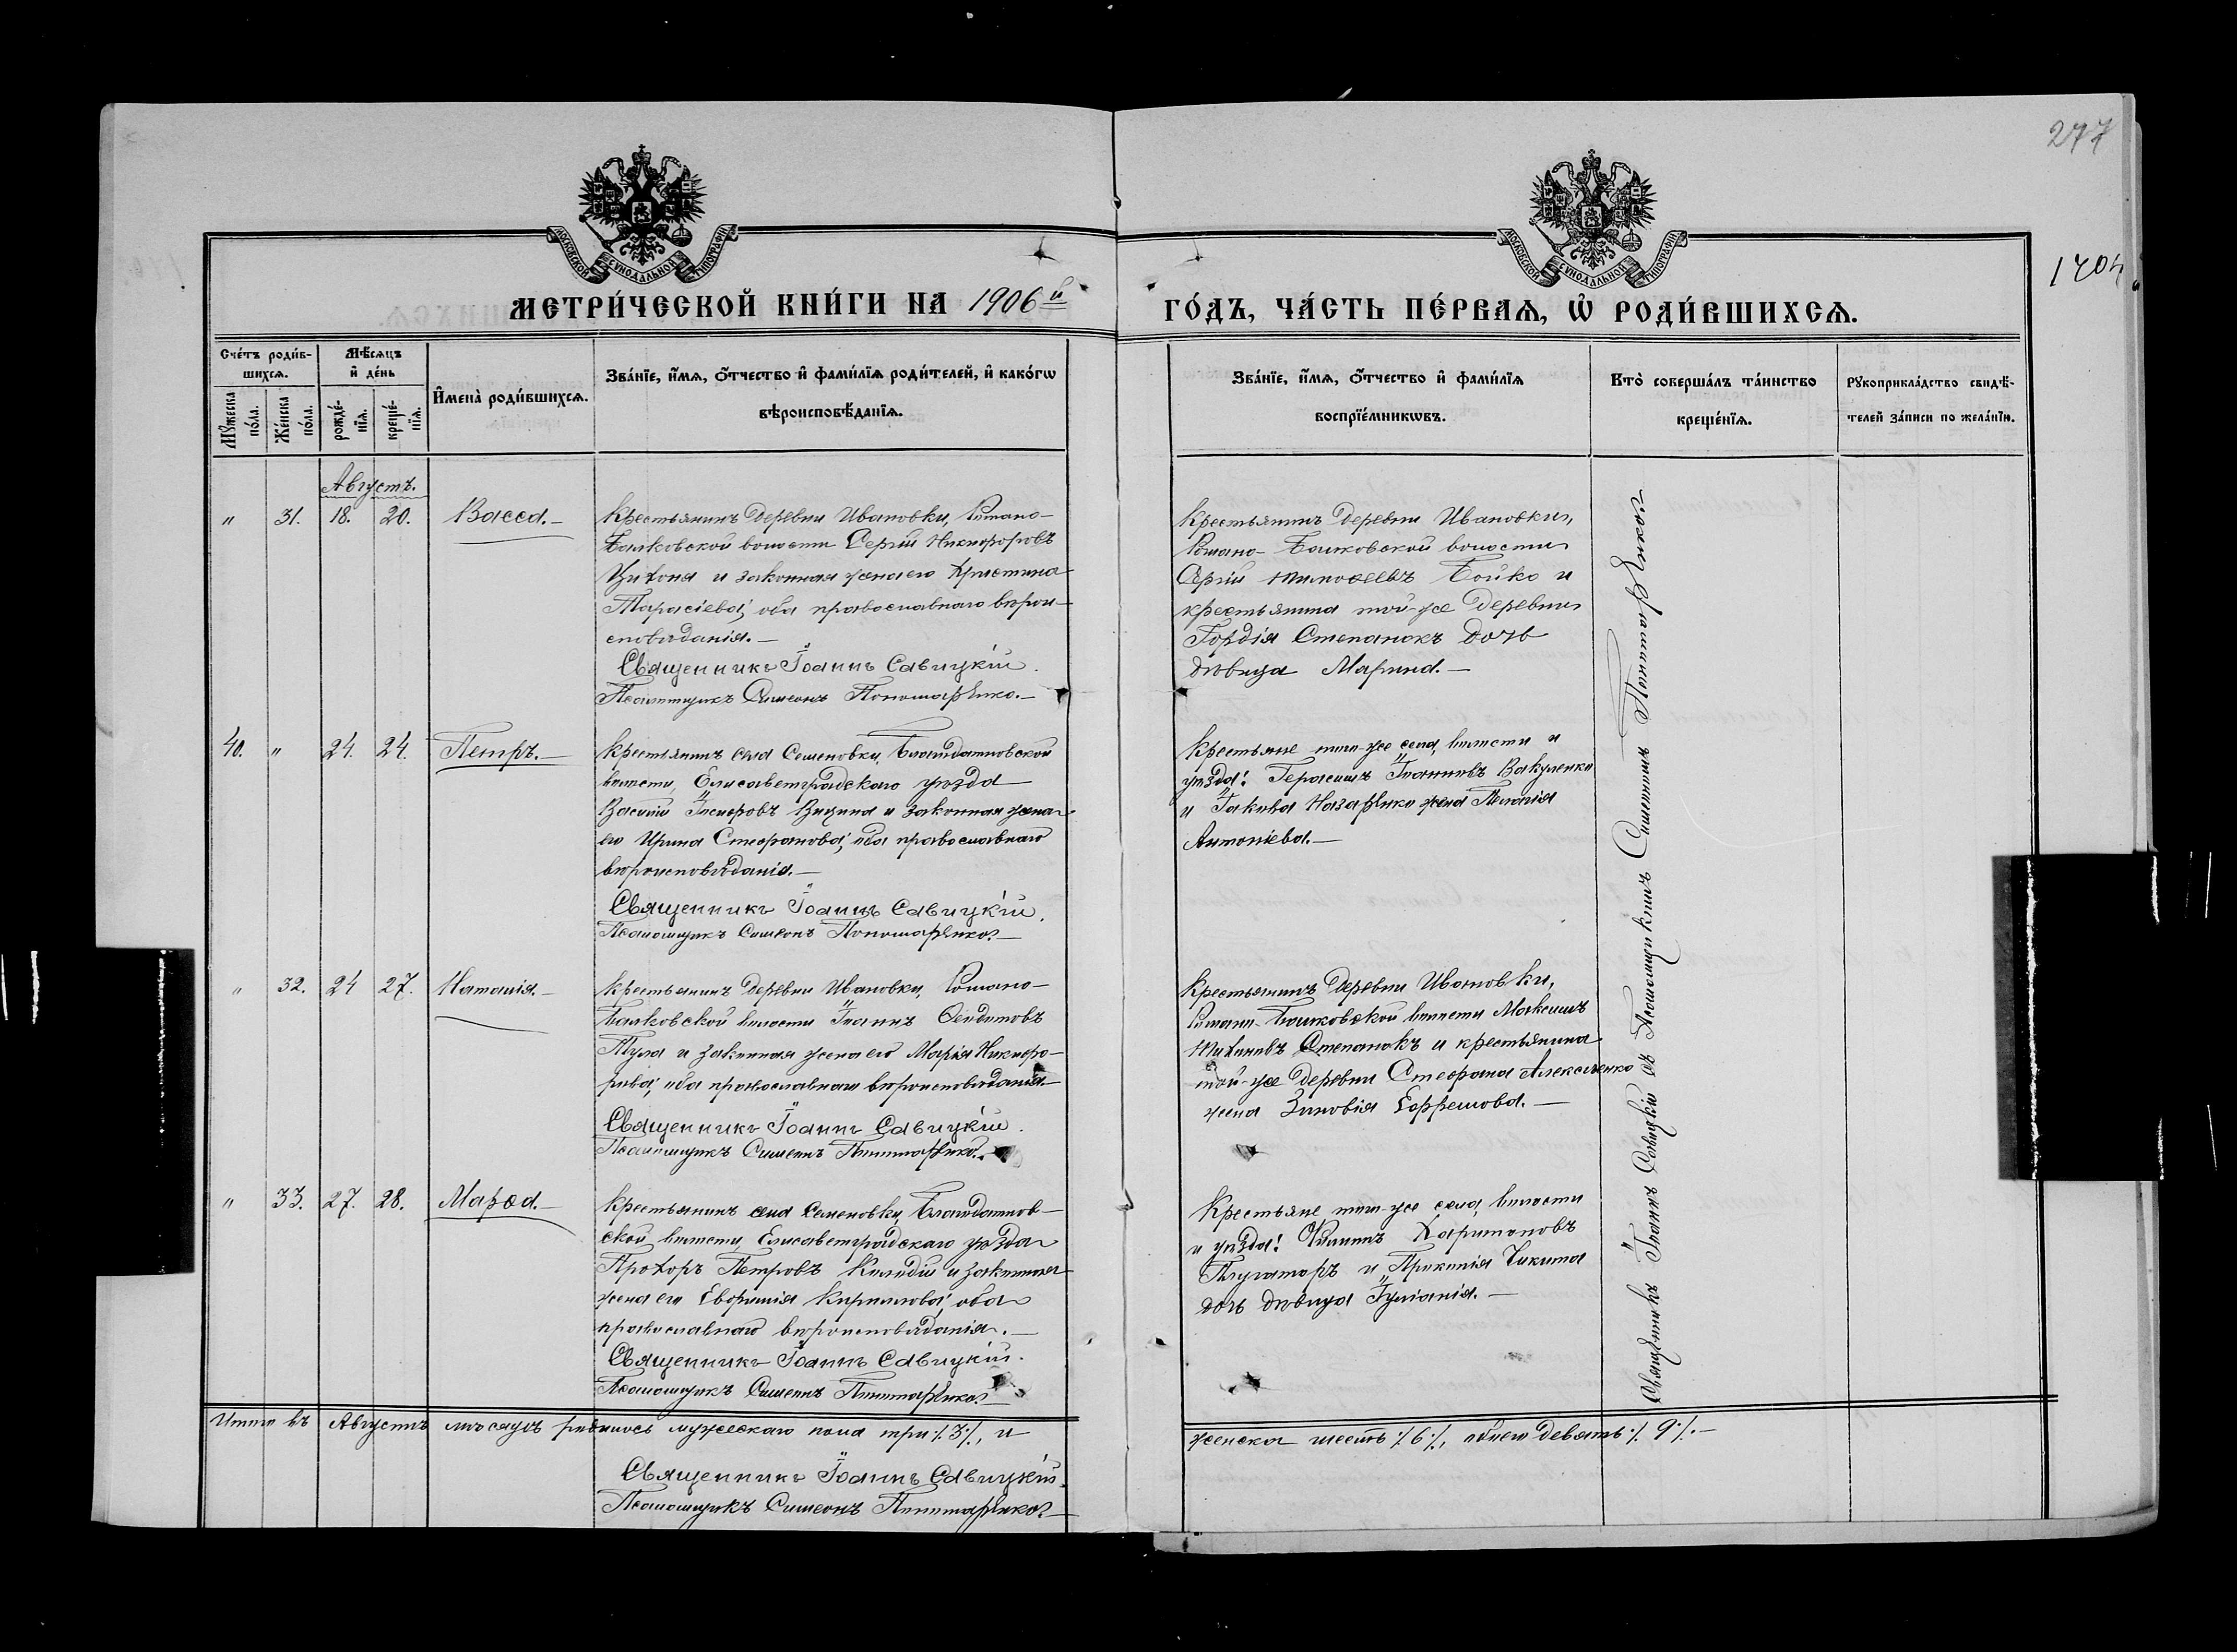 277
1704
МОСКОВСКОЙ СѴНОДАЛЬНОЙ ТИПОГРАФІИ
МОСКОВСКОЙ СѴНОДАЛЬНОЙ ТИПОГРАФІИ
МЕТРИ́ЧЕСКОЙ КНИ́ГИ НА 1906й
ГО́ДЪ, ЧА́СТЬ ПЕ́РВАѦ, Ѽ РОДИ́ВШИХСѦ.
Сче́тъ роди́в-
шихсѧ.
Мѣ́сѧцъ
и҆ де́нь
Мꙋ́жеска по́ла.
Же́нска по́ла.
рожде́-
нїѧ.
креще́-
нїѧ.
И҆мена̀ роди́вшихсѧ.
Зва́нїе, и҆́мѧ, ѻ҆́тчество и҆ фами́лїѧ роди́телей, и҆ како́гѡ
вѣроисповѣ́данїѧ.
Зва́нїе, и҆́мѧ, ѻ҆́тчество и҆ фами́лїѧ
воспрїе́мникѡвъ.
Кто̀ соверша́лъ та́инство
креще́нїѧ.
Рꙋкоприкла́дство свидѣ́-
телей за́писи по жела́нїю.
Августъ.
" 31. 18. 20. Васса.—
Крестьянинъ деревни Ивановки, Романо-
Балковской волости Сергій Никифоровъ
и законная жена его Христина
Тарасіева, оба православнаго вѣрои-
сповѣданія.—
Священникъ Іоаннъ Савицкій.
Псаломщикъ Симеонъ Пономаренко.—
Крестьянинъ деревни Ивановки,
Романо-Балковской волости
Сергій Тимофеевъ Бойко и
крестьянина той-же деревни
Гордія Степанокъ дочь
дѣвица Марина.—
40. " 24. 24. Петръ.—
Крестьянинъ села Семеновки, Благодатновской
волости, Елисаветградскаго уѣзда
Василій Іосифовъ и законная жена
его Ирина Стефанова, оба православнаго
вѣроисповѣданія.—
Священникъ Іоаннъ Савицкій.
Псаломщикъ Симеонъ Пономаренко.—
Крестьяне того-же села, волости и
уѣзда: Герасимъ Іоанновъ Вакуленко
и Іакова Назаренко жена Пелагія
Антоніева.—
" 32. 24 27. Наталія.—
Крестьянинъ деревни Ивановки, Романо-
Балковской волости Іоаннъ
и законная жена его Марія Никифо-
рова, оба православнаго вѣроисповѣданія.—
Священникъ Іоаннъ Савицкій.
Псаломщикъ Симеонъ Пономаренко.—
Крестьянинъ деревни Ивановки,
Романо-Балковской волости Максимъ
Тихоновъ Степанокъ и крестьянина
той-же деревни Стефана Алексеенко
жена Зиновія Ефремова.—
" 33. 27. 28. Марѳа.—
Крестьянинъ села Семеновки, Благодатнов-
ской волости, Елисаветградскаго уѣзда
Прохоръ Петровъ и законная
жена его Евфимія Кириллова, оба
православнаго вѣроисповѣданія.—
Священникъ Іоаннъ Савицкій.
Псаломщикъ Симеонъ Пономаренко.—
Крестьяне того-же села, волости
и уѣзда: Филиппъ Харитоновъ
Плугаторъ и Прокопія Чикита
дочь дѣвица Іуліанія.—
Священникъ Іоаннъ Савицкій съ Псаломщикомъ Симеономъ Пономаренкомъ
Итого въ Августѣ мѣсяцѣ родилось мужескаго пола три ./.3./., и
женска шесть ./.6./., обоего девять ./.9./.—
Священникъ Іоаннъ Савицкій.
Псаломщикъ Симеонъ Пономаренко.—